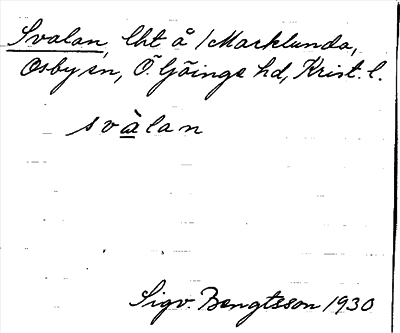 Svalan, lht å /Marklunda,
Osby sn, Ö. Göinge hd, Krist. l.
svàlan
Sigv. Bengtsson 1930